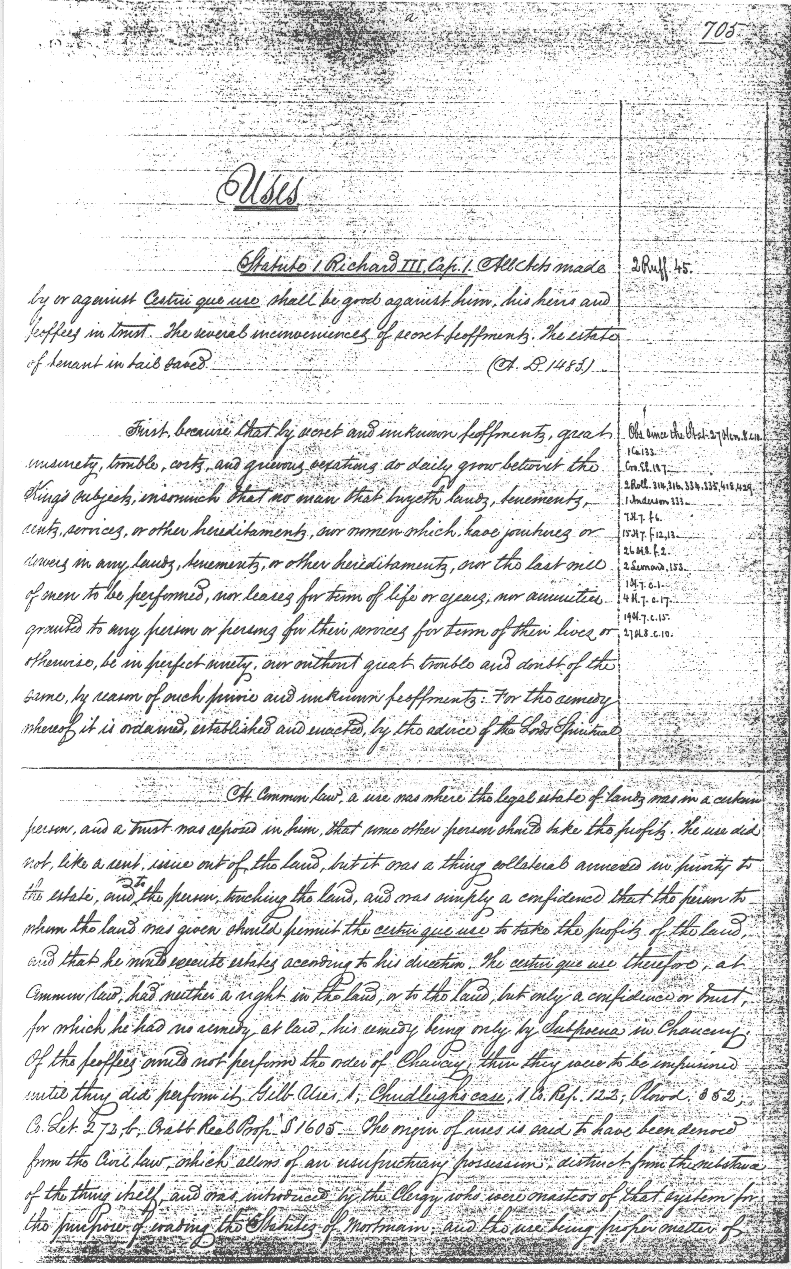 705.
Uses
Statute 1 Richard III, Cap. 1. All Acts made
2 Ruff. 45.
by or against Cestui que use shall be good against him, his heirs and
feoffees in trust. The several inconveniences of secret feoffments. The estate
of tenant in tail saved. (A. D. 1483)
First, because that by secret and unknown feoffments, great
unsurety, trouble, costs, and grievous vexations do daily grow betwixt the
King's subjects, insomuch that no man that buyeth lands, tenements,
rents, services, or other hereditaments, nor women which have jointures or
dowers in any lands, tenements, or other hereditaments, nor the last will
of men to be performed, nor leases for term of life or years, nor annuities
granted to any person or persons for their services for term of their lives or
otherwise, be in perfect surety, nor without great trouble and doubt of the
same, by reason of such privie and unknown feoffments: For the remedy
whereof it is ordained, established and enacted, by the advice of the Lords Spiritual
Obs. since the Stat. 27 Hen. 8. c. 10.
1 Co. 133.
Cro. El. 187.
2 Roll. 314, 316, 334, 335, 418, 429.
1 Anderson 333.
7 H. 7. f. 6.
15 H. 7. f. 12, 13.
26 H. 8. f. 2.
2 Leonard, 153.
1 H. 7. c. 1.
4 H. 7. c. 17.
19 H. 7. c. 15.
27 H. 8. c. 10.
At Common law, a use was where the legal estate of lands was in a certain
person, and a trust was reposed in him, that some other person should take the profits. The use did
not, like a rent, issue out of the land, but it was a thing collateral annexed in privity to
the estate, and to the person, touching the land, and was simply a confidence that the person to
whom the land was given should permit the cestui que use to take the profits of the land,
and that he would execute estates according to his direction. The cestui que use therefore, at
Common law, had neither a right in the land, or to the land, but only a confidence or trust,
for which he had no remedy at law, his remedy being only by Subpoena in Chancery.
If the feoffees would not perform the order of Chancery, then they were to be imprisoned
until they did perform it. Gilb. Uses, 1; Chudleigh's case, 1 Co. Rep. 122; Plowd. 352;
Co. Lit. 272, b; Crabb Real Prop. § 1605. The origin of uses is said to have been derived
from the Civil law, which allows of an usufructuary possession, distinct from the substance
of the thing itself, and was introduced by the Clergy who were masters of that system for
the purpose of evading the Statutes of Mortmain; and the use being proper matter of